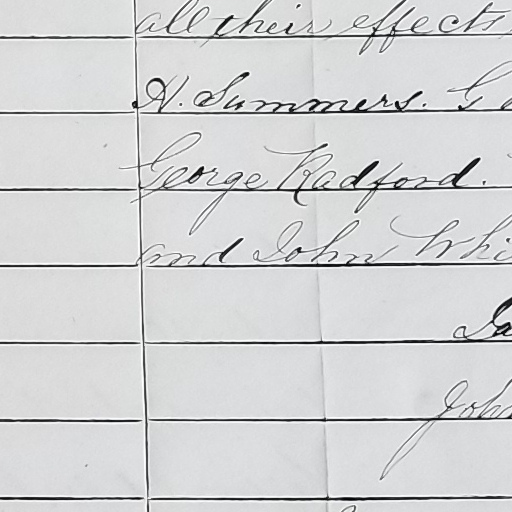 all their effects
H. Summers. G
George Radford.
and John Whi
Ja
John